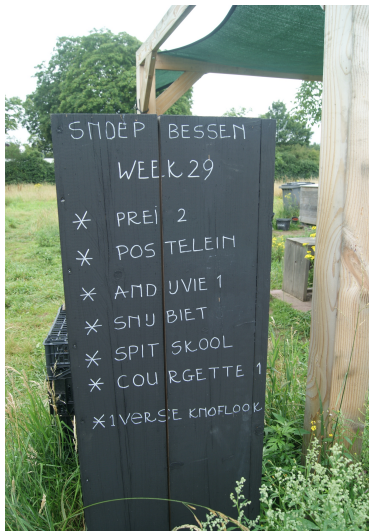 SNOEP BESSEN
WEEK 29
* PREI 2
* POSTELEIN
* ANDUVIE 1
* SNIJBIET
* SPITSKOOL
* COURGETTE 1
* 1 VERSE KNOFLOOK